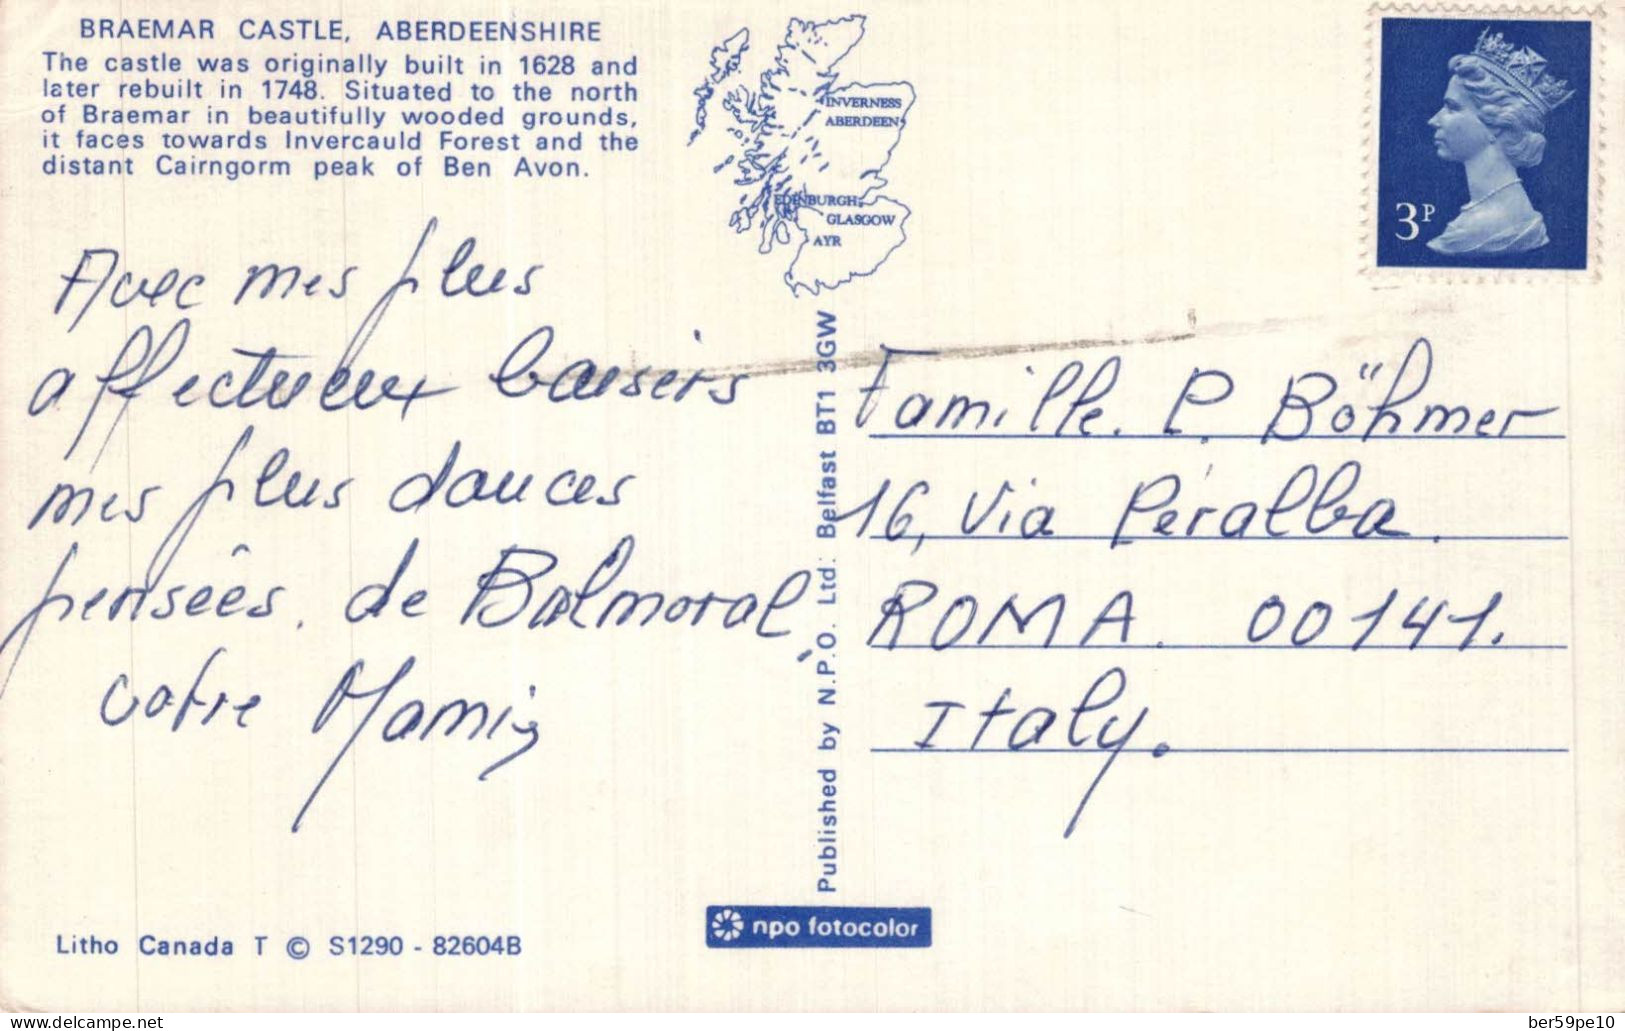 BRAEMAR CASTLE, ABERDEENSHIRE
The castle was originally built in 1628 and
later rebuilt in 1748. Situated to the north
of Braemar in beautifully wooded grounds,
it faces towards Invercauld Forest and the
distant Cairngorm peak of Ben Avon.
INVERNESS
ABERDEEN
EDINBURGH
GLASGOW
AYR
3P
Avec mes plus
affectueux baisers
mes plus douces
pensées. de Balmoral,
votre Mamie
Published by N.P.O. Ltd. Belfast BT1 3GW
Famille. P. Böhmer
16, Via Péralba.
ROMA. 00141.
Italy.
Litho Canada T © S1290 - 82604B
npo fotocolor
delcampe.net
ber59pe10